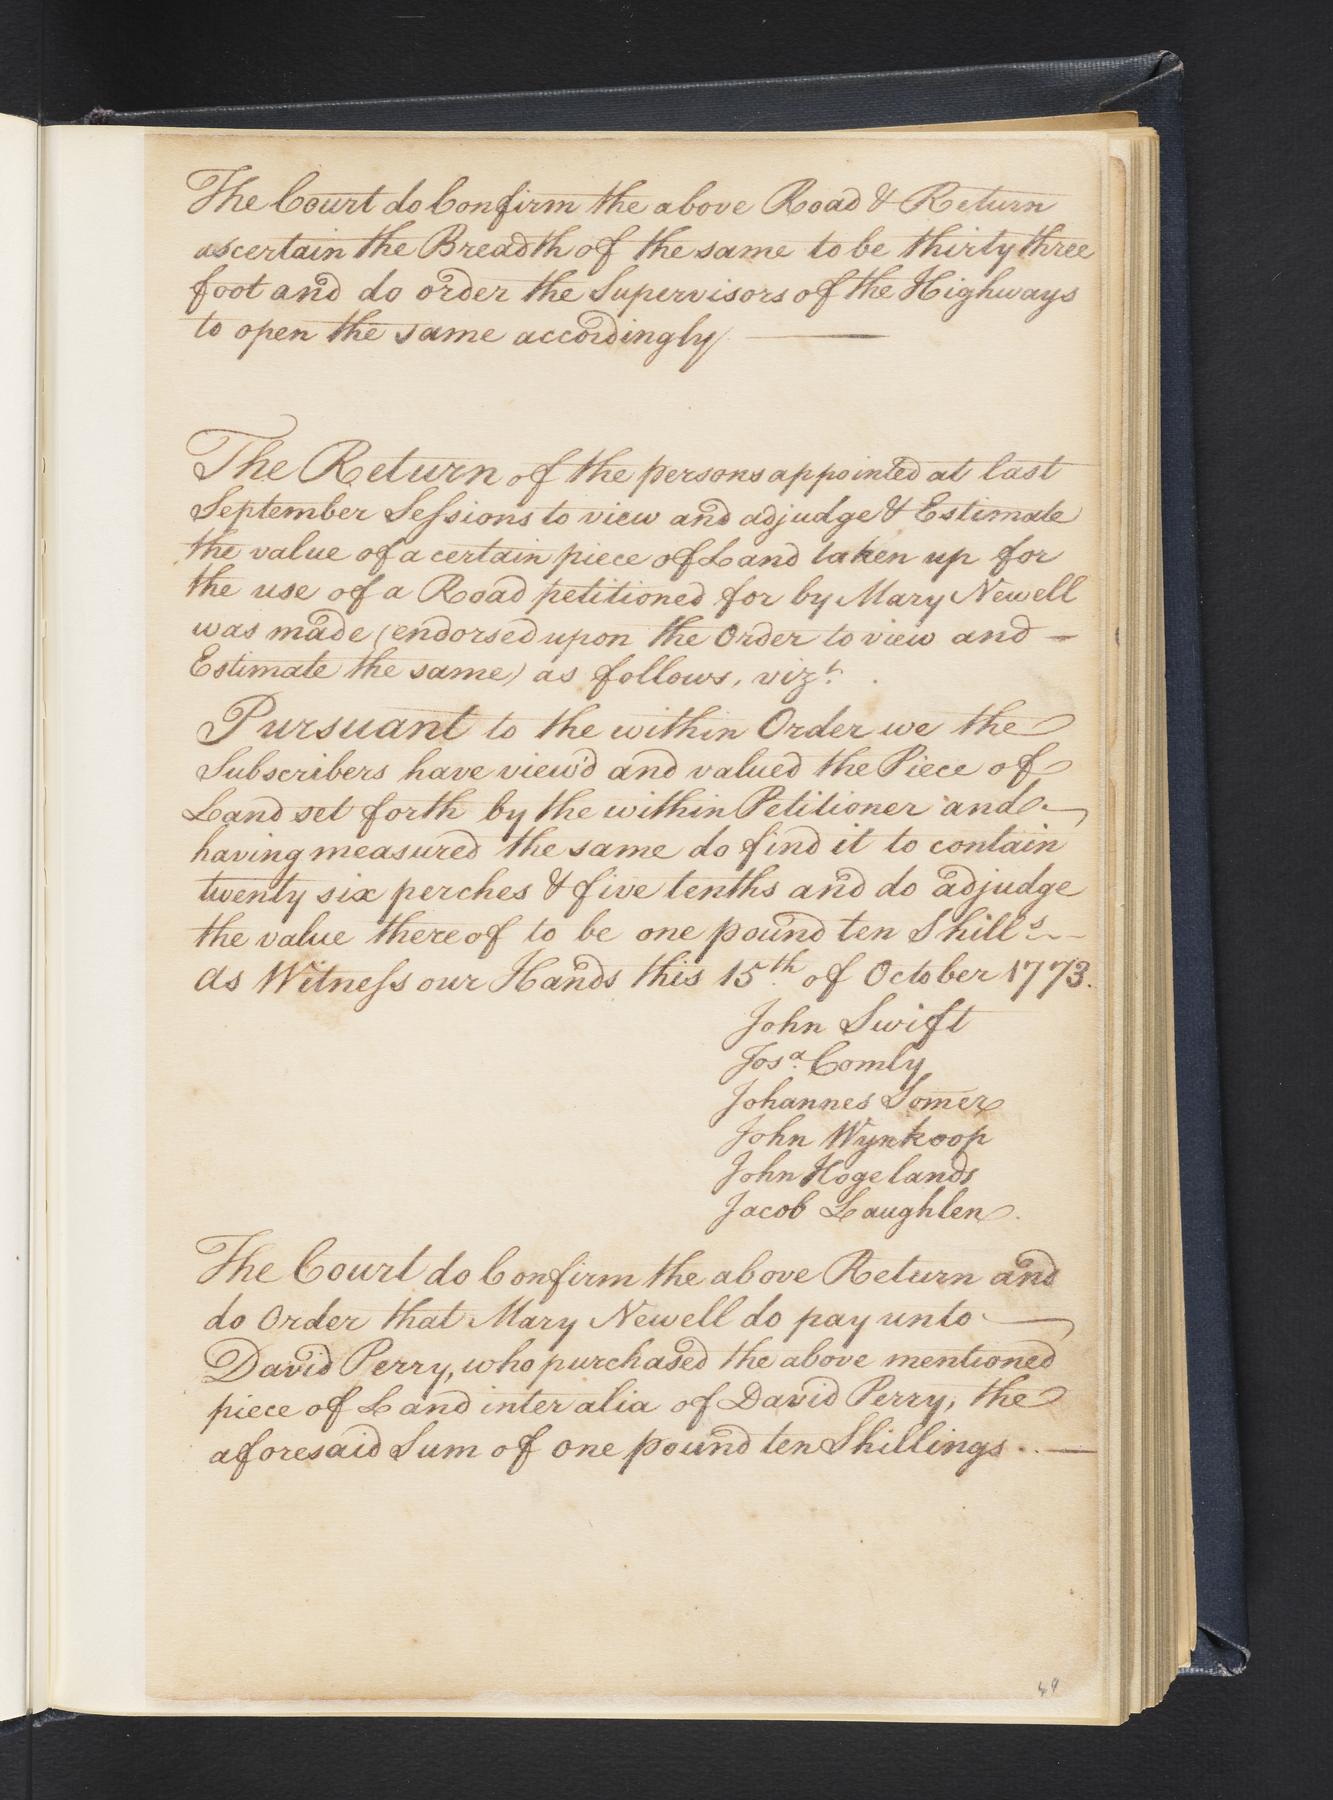 The Court do Confirm the above Road & Return
ascertain the Breadth of the same to be thirty three
foot and do order the Supervisors of the Highways
to open the same accordingly
The Return of the persons appointed at last
September Sessions to view and adjudge & Estimate
the value of a certain piece of Land taken up for
the use of a Road petitioned for by Mary Newell
was made (endorsed upon the Order to view and —
Estimate the same) as follows, vizt.
Pursuant to the within Order we the
Subscribers have view'd and valued the Piece of
Land set forth by the within Petitioner and
having measured the same do find it to contain
twenty six perches & five tenths and do adjudge
the value thereof to be one pound ten Shills
As Witness our Hands this 15th. of October 1773.
John Swift
Josa. Comly
Johannes Somer
John Wynkoop
John Hogelands
Jacob Laughlen
The Court do Confirm the above Return and
do Order that Mary Newell do pay unto
David Perry, who purchased the above mentioned
piece of Land inter alia of David Perry, the
aforesaid Sum of one pound ten Shillings . . —
49